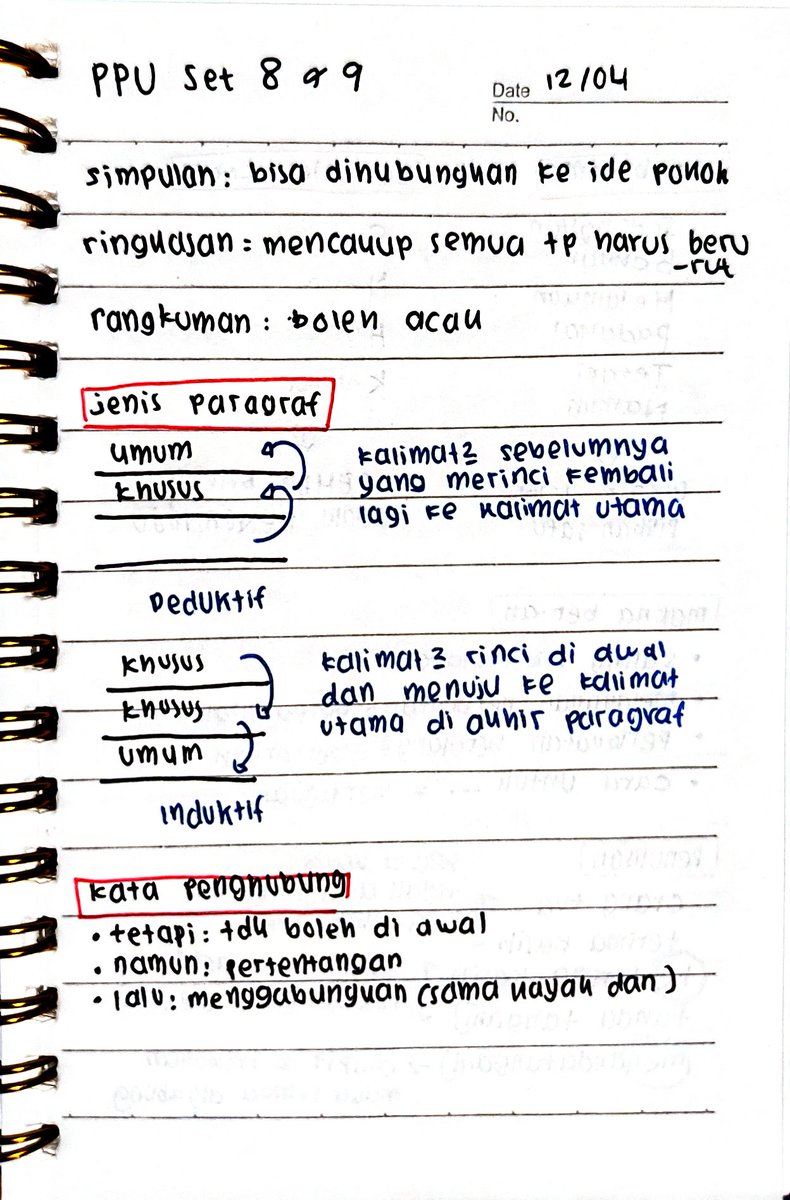 PPU set 8 & 9
Date 12/04
No.
simpulan : bisa dihubungkan ke ide pokok
ringkasan : mencakup semua tp harus beru
-rut
rangkuman : boleh acak
jenis paragraf
umum
khusus
kalimat2 sebelumnya
yang merinci kembali
lagi ke kalimat utama
Deduktif
khusus
khusus
umum
kalimat2 rinci di awal
dan menuju ke kalimat
utama di akhir paragraf
Induktif
kata penghubung
• tetapi : tdk boleh di awal
• namun : pertentangan
• lalu : menggabungkan (sama kayak dan)